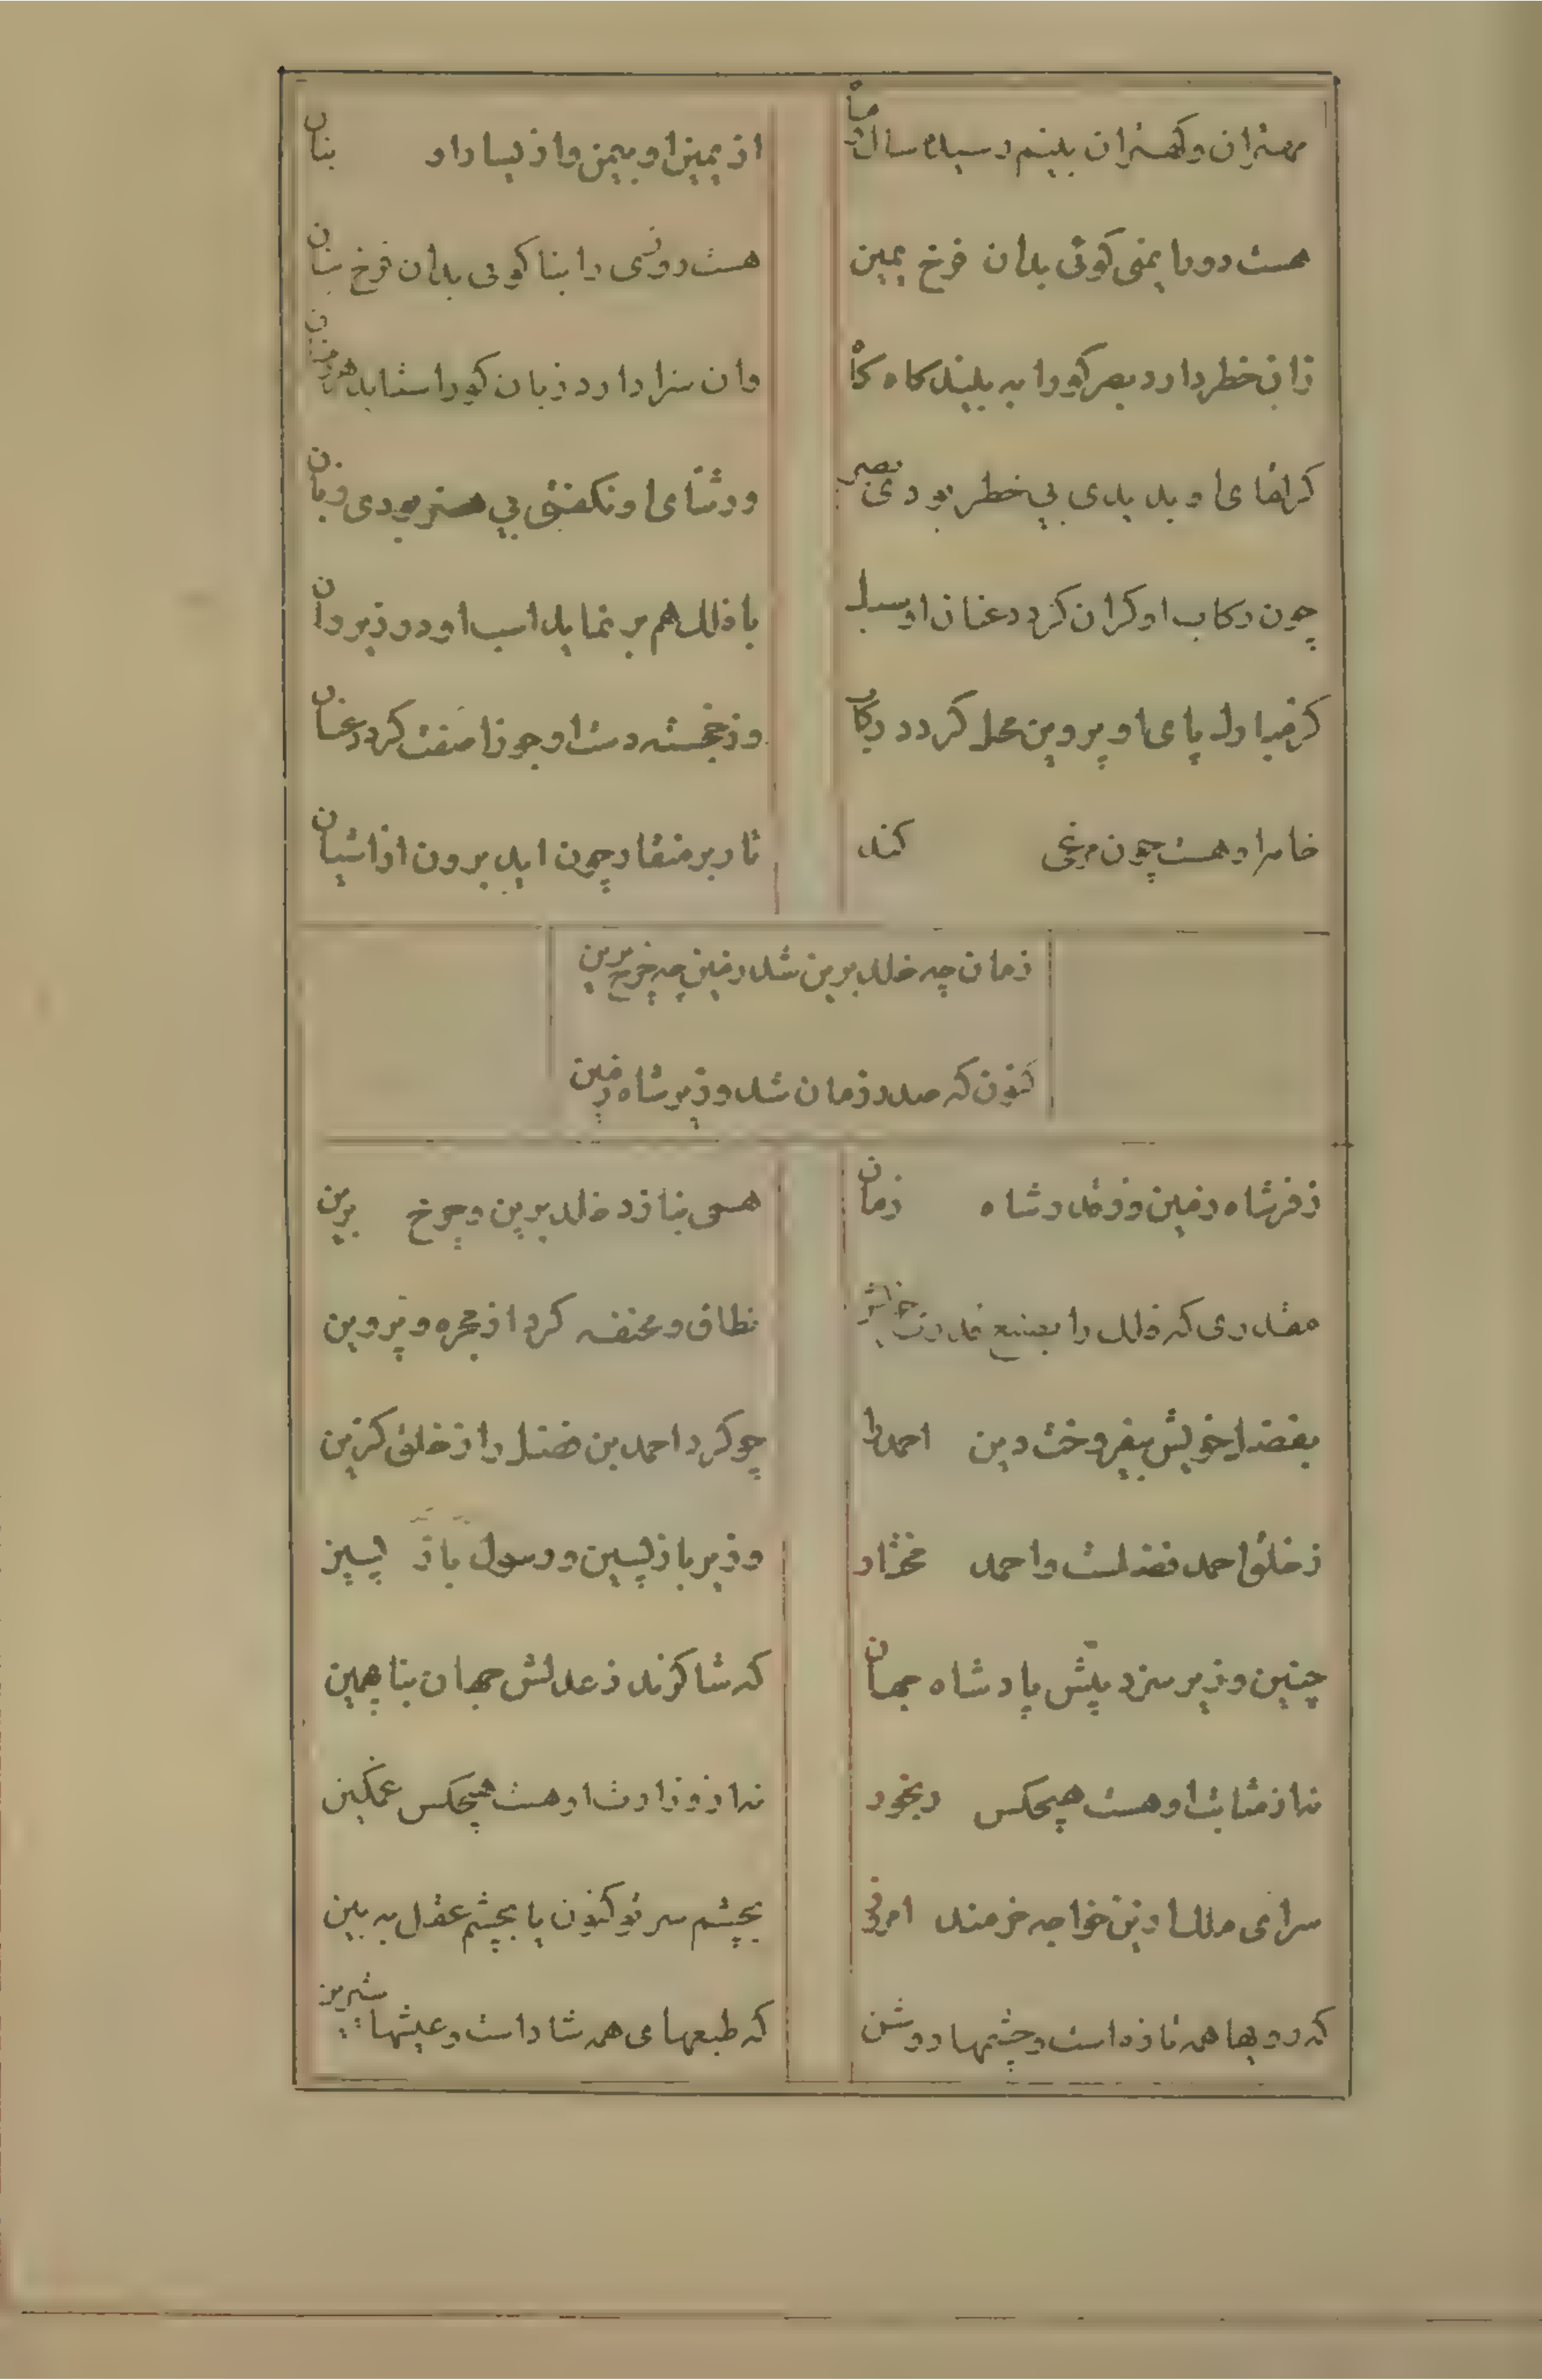 مهتران وکهتران بینم رسیده سال و ماه
از یمین او بیمن و از یسار او بنان
هست روها یمنی کوئی بدان فرخ یمین
هست روزی را بنا کوئی بدان فرخ بنان
زان خطر دارد بصر کورا به بیند کاه کاه
وان سزا دارد زبان کورا ستاید هر زمان
کر لقای او بدیدی بی خطر بودی بصر
ور ثنای او نکفتی بی هنر بودی زبان
چون رکاب او کران کردد عنان او سبک
با فلک هم بر نماید اسب او در زیر ران
کز مبارک پای او پروین محل کردد رکاب
وز خجسته دست او جوزا صفت کردد عنان
خامه او هست چون مرغی کند
تا در بر منقار چون اید برون از اشیان
زمان چه خلد برین شد زمین چه چرخ برین
کنون که صدر زمان شد وزیر شاه زمین
ز فر شاه زمین وز قدر شاه زمان
همی بنازد خلد برین و چرخ برین
مقدری که فلک را بصنع قدرت خویش
نطاق و مخنقه کرد از مجره و پروین
بفضل خویش بیفروخت دین احمد را
چو کرد احمد بن فضل را ز خلق کزین
ز خلق احمد فضلست و احمد مختار
وزیر باز پسین و رسول باز پسین
چنین وزیر سزد پیش پادشاه جهان
که شاکرند ز عدلش جهان بناهمین
نه از مثابت او هست هیچکس رنجور
نه از وزارت او هست هیچکس غمکین
سرای ملک ازین خواجه خرمند امروز
بچشم سر تو کنون یا بچشم عقل به بین
که رویها همه تازه است و چشمها روشن
که طبعهای همه شاد است و عیشها شیرین